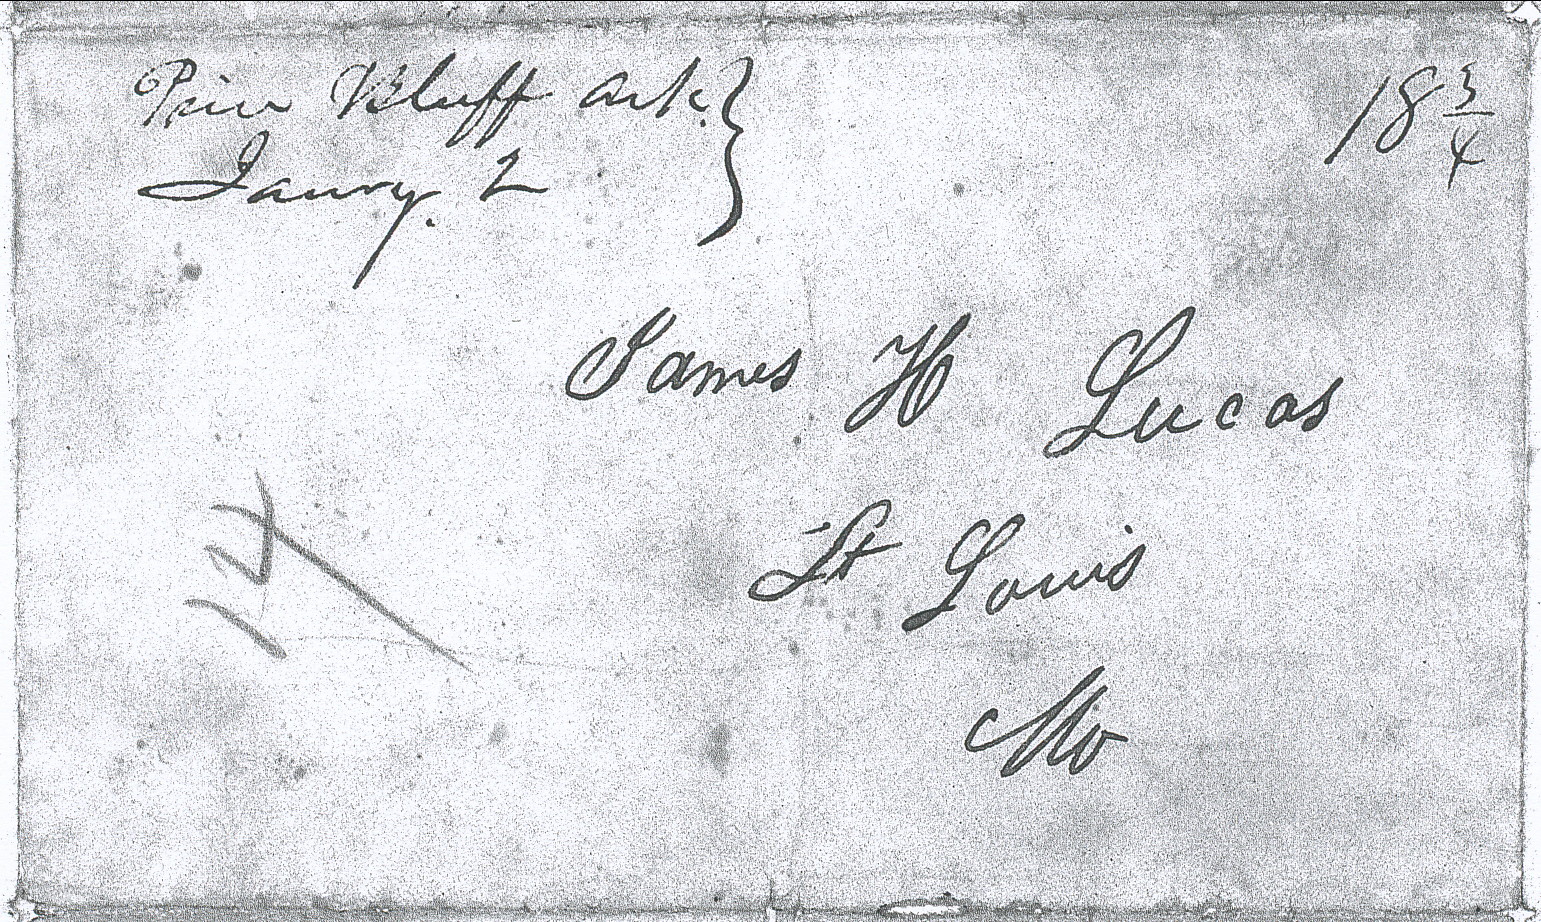 Pine Bluff Ark.
Janry. 2
18 3/4
James H Lucas
St Louis
Mo